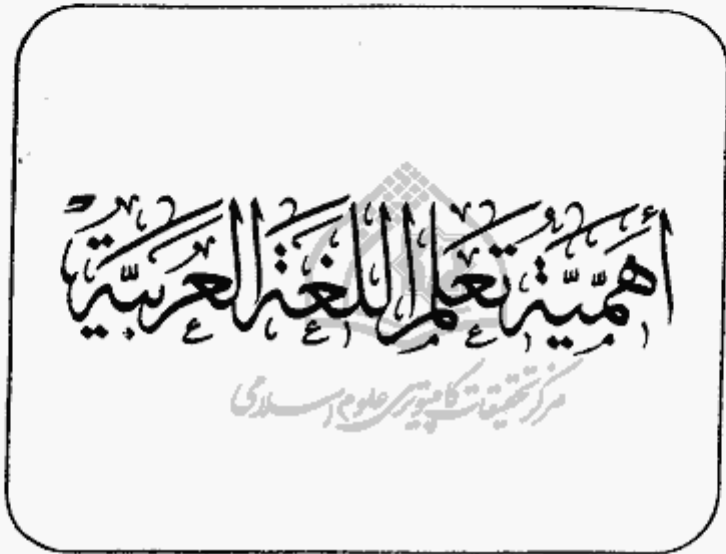 أهمية تعلم اللغة العربية
مرکز تحقیقات کامپیوتری علوم اسلامی